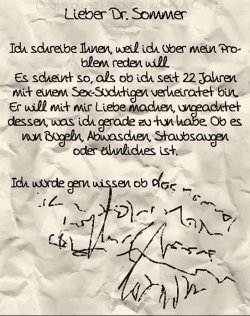 Lieber Dr. Sommer
Ich schreibe Ihnen, weil ich über mein Pro-
blem reden will.
Es scheint so, als ob ich seit 22 Jahren
mit einem Sex-Süchtigen verheiratet bin.
Er will mit mir Liebe machen, ungeachtet
dessen, was ich gerade zu tun habe. Ob es
nun Bügeln, Abwaschen, Staubsaugen
oder ähnliches ist.
Ich würde gern wissen ob